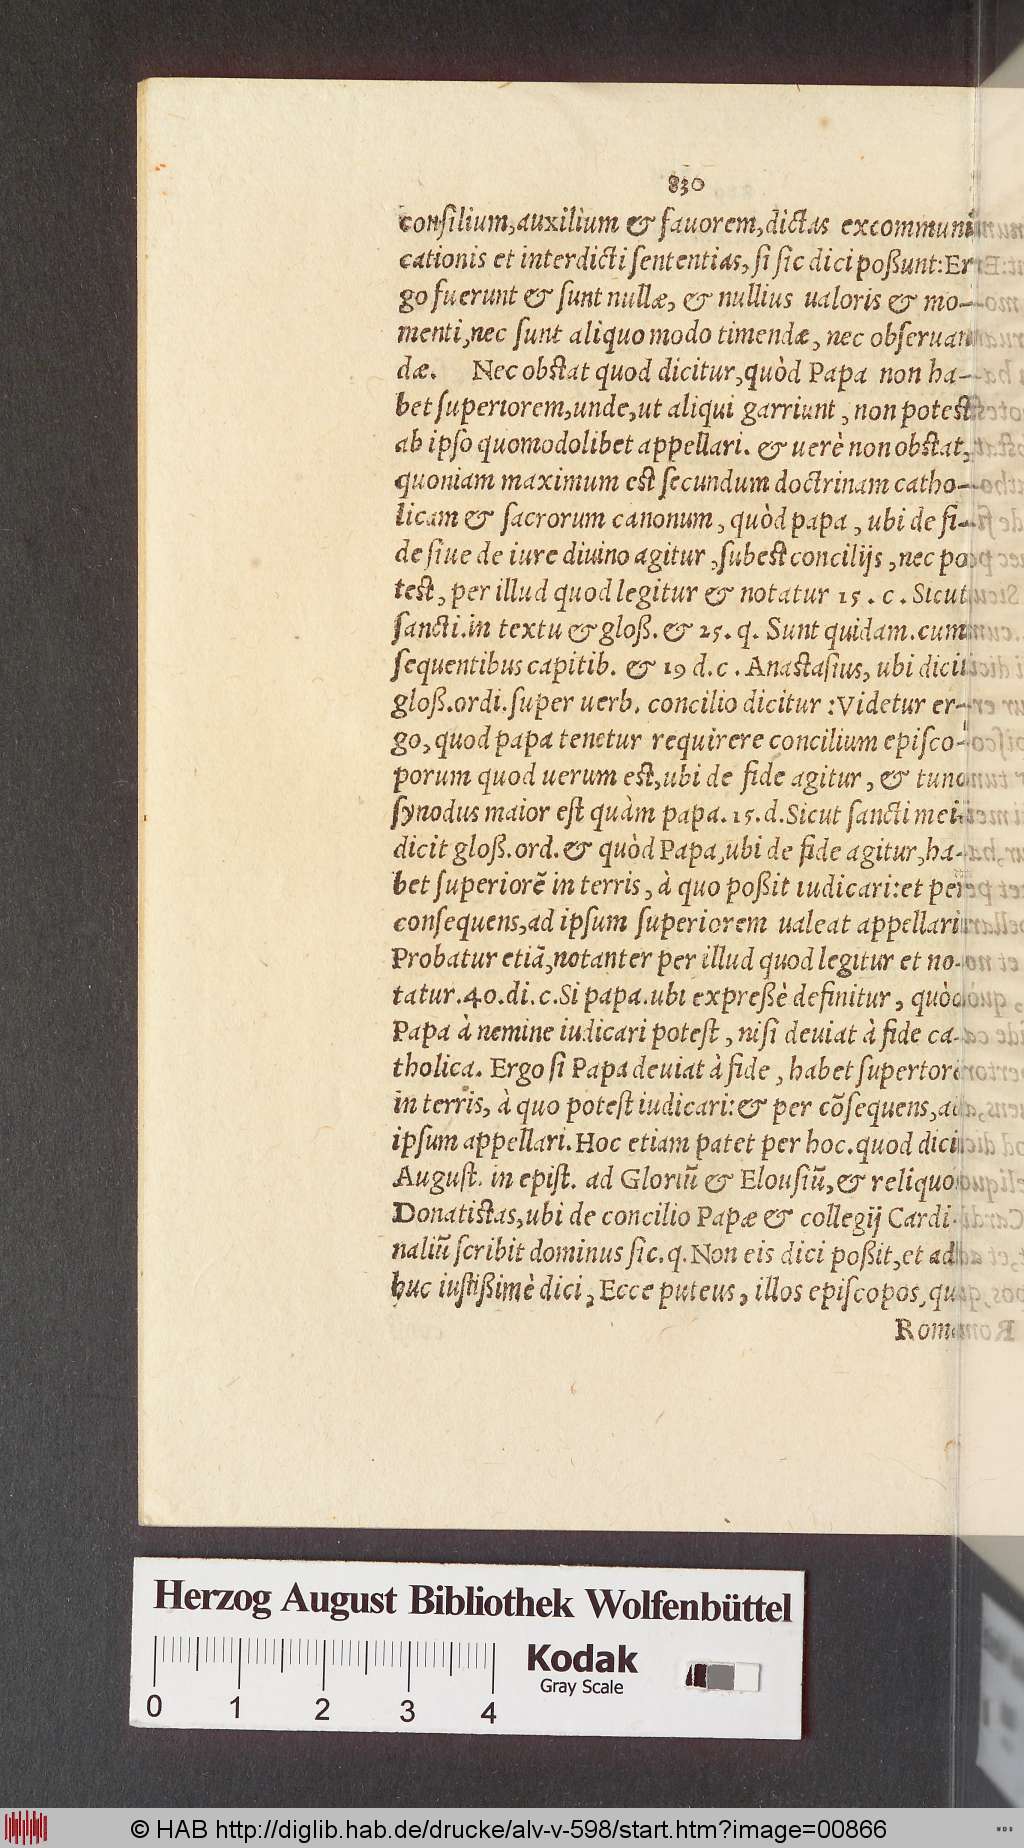 830
consilium, auxilium & fauorem, dictas excommuni
cationis et interdicti sententias, si sic dici poßunt: Er
go fuerunt & sunt nullæ, & nullius ualoris & mo-
menti, nec sunt aliquo modo timendæ, nec obseruan
dæ. Nec obstat quod dicitur, quòd Papa non ha-
bet superiorem, unde, ut aliqui garriunt, non potest
ab ipso quomodolibet appellari. & uerè non obstat,
quoniam maximum est secundum doctrinam catho-
licam & sacrorum canonum, quòd papa, ubi de fi-
de siue de iure diuino agitur, subest concilijs, nec po
test, per illud quod legitur & notatur 15. c. Sicut
sancti. in textu & gloß. & 25. q. Sunt quidam. cum
sequentibus capitib. & 19 d. c. Anastasius, ubi dicit
gloß. ordi. super uerb. concilio dicitur: Videtur er-
go, quod papa tenetur requirere concilium episco-
porum quod uerum est, ubi de fide agitur, & tunc
synodus maior est quàm papa. 15. d. Sicut sancti mei.
dicit gloß. ord. & quòd Papa, ubi de fide agitur, ha-
bet superiorē in terris, à quo poßit iudicari: et per
consequens, ad ipsum superiorem ualeat appellari
Probatur etiā, notanter per illud quod legitur et no-
tatur. 40. di. c. Si papa. ubi expreßè definitur, quòd
Papa à nemine iudicari potest, nisi deuiat à fide ca-
tholica. Ergo si Papa deuiat à fide, habet superiorē
in terris, à quo potest iudicari: & per cōsequens, ad
ipsum appellari. Hoc etiam patet per hoc. quod dicit
August. in epist. ad Gloriū & Elousiū, & reliquos
Donatistas, ubi de concilio Papæ & collegij Cardi-
naliū scribit dominus sic. q. Non eis dici poßit, et ad
huc iustißimè dici, Ecce puteus, illos episcopos,
Herzog August Bibliothek Wolfenbüttel
Kodak
Gray Scale
0 1 2 3 4
© HAB http://diglib.hab.de/drucke/alv-v-598/start.htm?image=00866